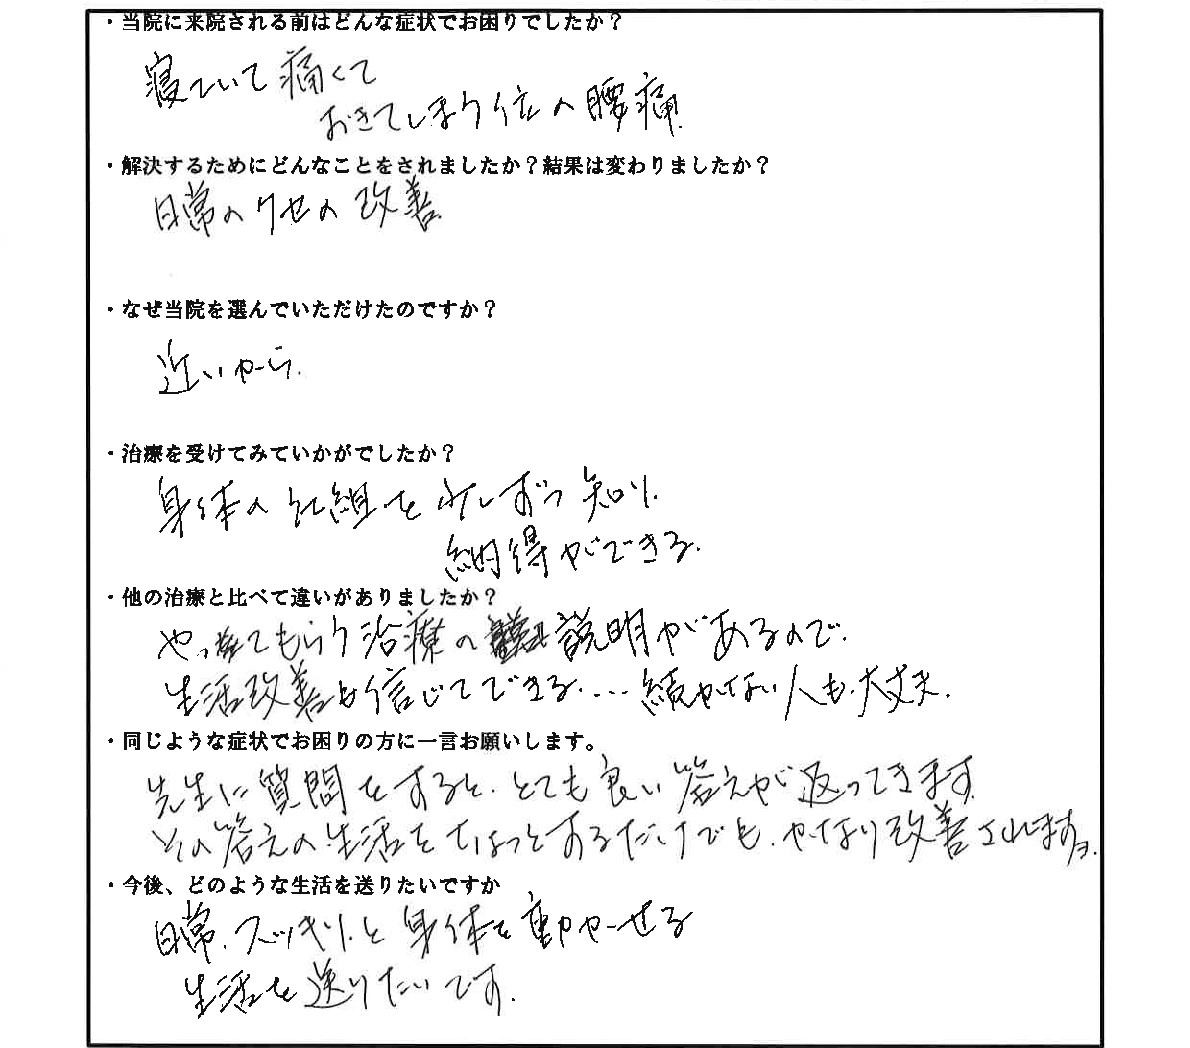 ・当院に来院される前はどんな症状でお困りでしたか？
寝ていて痛くて
おきてしまう位の腰痛.
・解決するためにどんなことをされましたか？結果は変わりましたか？
日常のクセの改善.
・なぜ当院を選んでいただけたのですか？
近いから.
・治療を受けてみていかがでしたか？
身体の仕組を少しずつ知り.
納得ができる.
・他の治療と比べて違いがありましたか？
やってもらう治療の説明があるので.
生活改善も信じてできる....続かない人も.大丈夫.
・同じような症状でお困りの方に一言お願いします。
先生に質問をすると.とても良い答えが返ってきます.
その答えの生活をちょっとするだけでも.かなり改善されますヨ.
・今後、どのような生活を送りたいですか
日常.スッキリ.と身体を動かせる
生活を送りたいです.